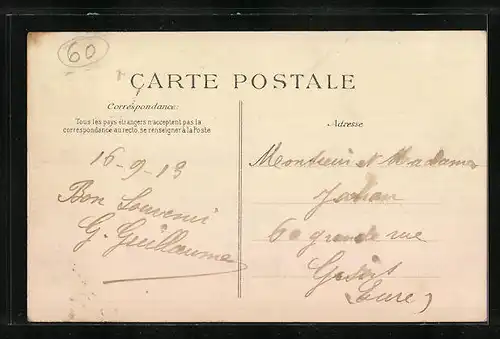 60
CARTE POSTALE
Correspondance:
Tous les pays étrangers n'acceptent pas la
correspondance au recto, se renseigner à la Poste
Adresse
16-9-13
Bon Souvenir
G. Guillaume
Monsieur et Madame
60 grande rue
Eure)